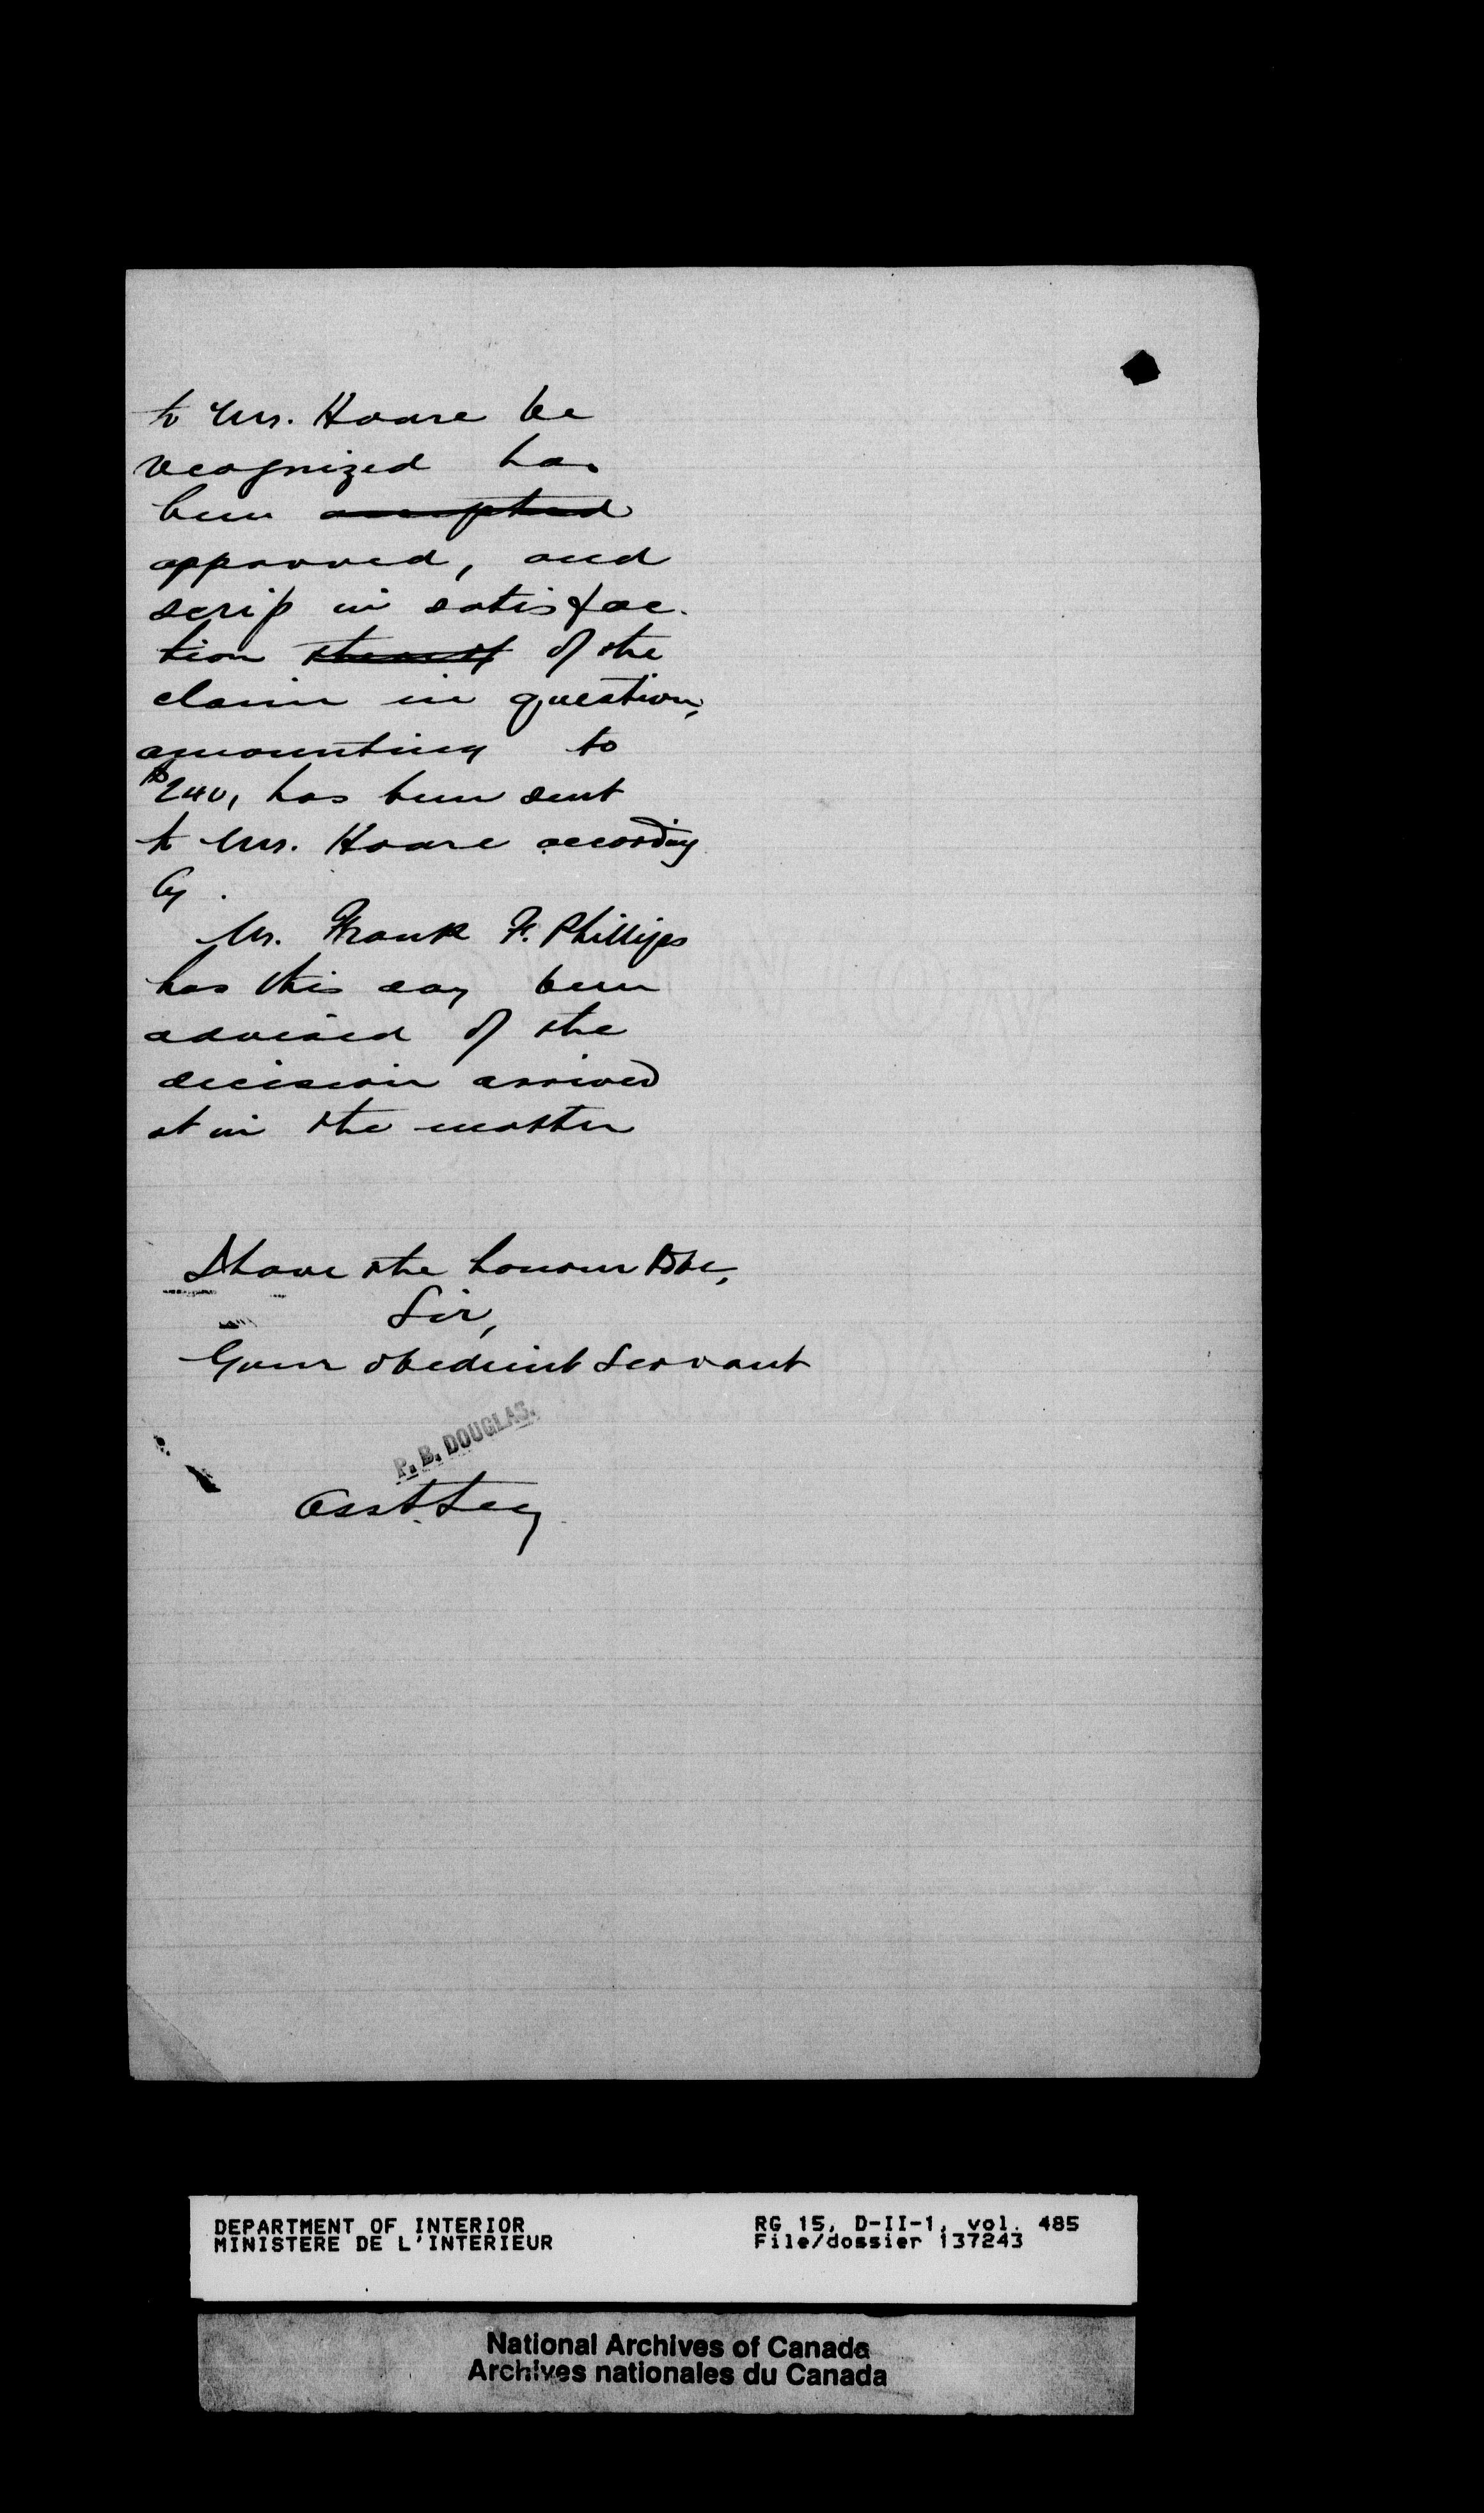 to Mrs. Hoare be
recognized has
been accepted
approved, and
scrip in satisfac-
tion thereof of the
claim in question,
amounting to
$240, has been sent
to Mrs. Hoare according
ly.
Mr. Frank F. Phillips
has this day been
advised of the
decision arrived
at in the matter
I have the honour to be,
Sir,
Your obedient Servant
P. B. DOUGLAS.
Asst Secy
DEPARTMENT OF INTERIOR
MINISTERE DE L'INTERIEUR
RG 15, D-II-1, vol. 485
File/dossier 137243
National Archives of Canada
Archives nationales du Canada